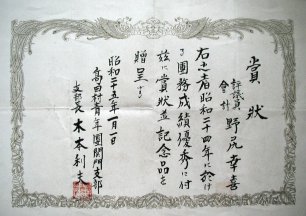 賞状
評議員
会計
野尻幸喜
右之者昭和二十四年ニ於ける
團務成績優秀に付
茲に賞状並記念品を
贈呈す
昭和二十五年一月一日
高田村青年團関門支部
支部長 木本利夫